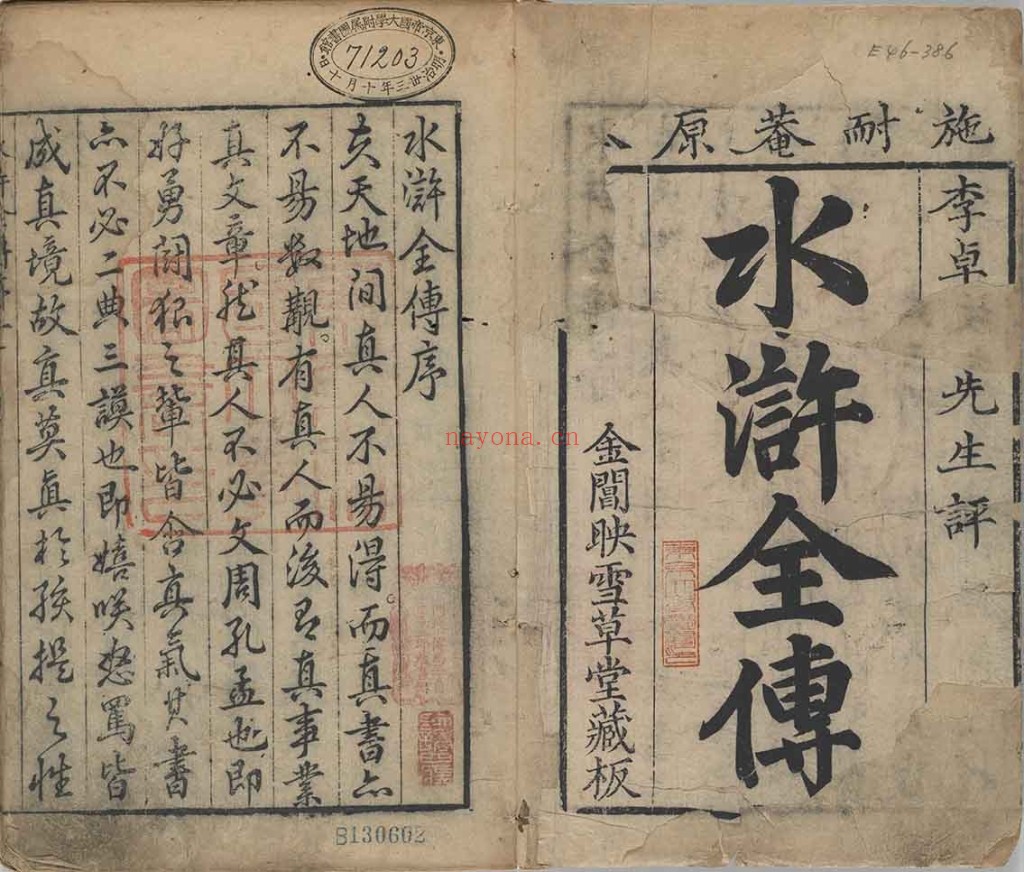 E46-386
施耐菴原
李卓 先生評
水滸全傳
金閶映雪草堂藏板
東京帝國大學附属圖書館
71203
明治卅三年十月十日
水滸全傳序
夫天地間真人不易得。而真書亦
不易数覯。有真人而後有真事業
真文章。然其人不必文周孔孟也。即
好勇鬪狠之輩皆含真氣其書
亦不必二典三謨也即嬉咲怒罵皆
成真境故真莫真於孩提之性
B130602
nayona.cn